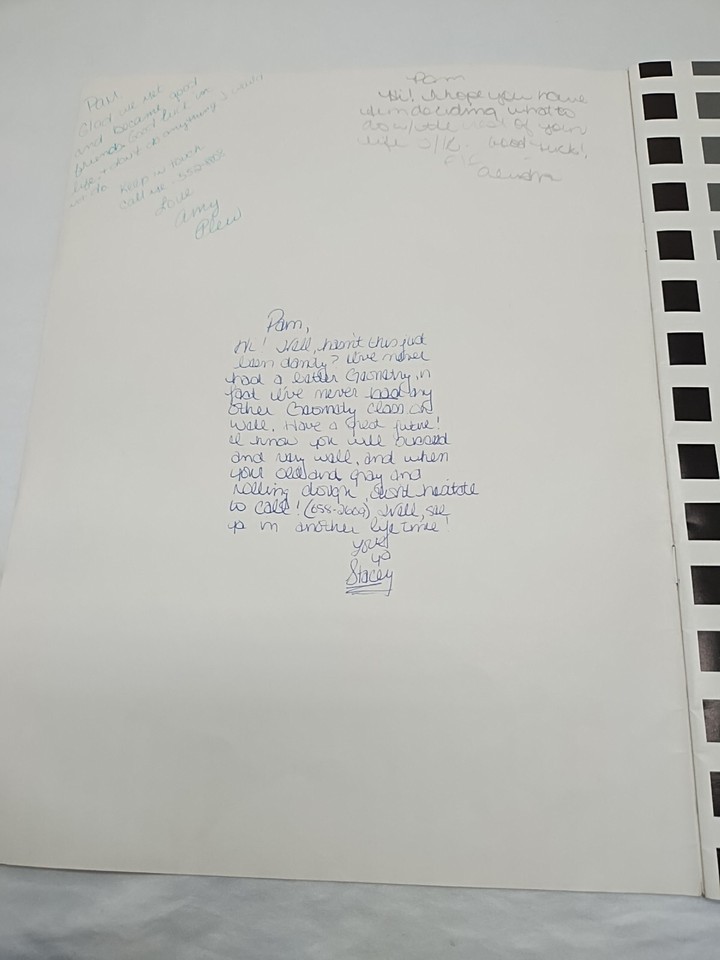 Pam
Glad we met
and became good
friends. Good luck in
life + don't do anything I would
not do. Keep in touch
call me.
Love
Amy
Plew
Pam
Hi! I hope you have
fun deciding what to
do w/ the rest of your
life J/K. Good luck!
Pam,
Hi! Well, hasn't this just
been dandy? I've never
had a better Geometry, in
fact I've never had any
other Geometry class. Oh
Well. Have a great future!
I know you will succeed
and very well, and when
your old and gray and
rolling dough, don't hesitate
to call! (658-2609) Well, see
ya in another life time!
Stacey